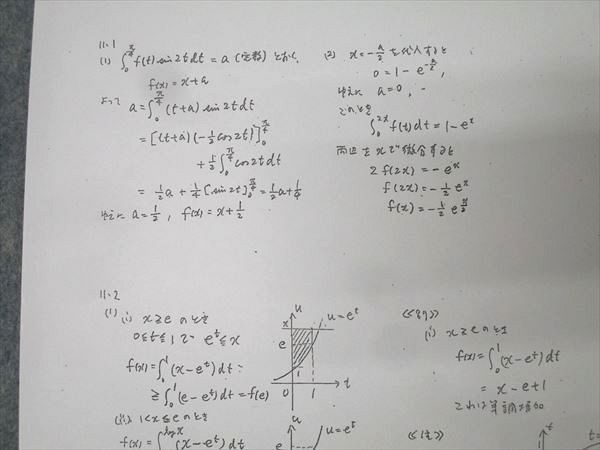 11.1
(1) ∫₀^{π/4} f(t) sin2t dt = a (定数) とおく.
f(x) = x+a
よって a = ∫₀^{π/4} (t+a) sin2t dt
= [(t+a)(-1/2 cos2t)]₀^{π/4}
+ 1/2 ∫₀^{π/4} cos2t dt
= 1/2 a + 1/4 [sin2t]₀^{π/4} = 1/2 a + 1/4
ゆえに a = 1/2, f(x) = x + 1/2
(2) x = -a/2 を代入すると
0 = 1 - e^{-a/2},
ゆえに a = 0,
このとき
∫₀^{2x} f(t) dt = 1 - e^x
両辺を x で微分すると
2 f(2x) = - e^x
f(2x) = - 1/2 e^x
f(x) = - 1/2 e^{x/2}
11.2
(1) (i) x ≧ e のとき
0 ≦ t ≦ 1 で e^t ≦ x
f(x) = ∫₀^1 (x - e^t) dt
≧ ∫₀^1 (e - e^t) dt = f(e)
(ii) 1 < x ≦ e のとき
f(x) = ∫₀^{log x} (x - e^t) dt
u
u = e^t
x
e
1
0
1
t
u
u = e^t
e
≪別≫
(i) x ≧ e のとき
f(x) = ∫₀^1 (x - e^t) dt
= x - e + 1
これは単調増加
t
t =
1